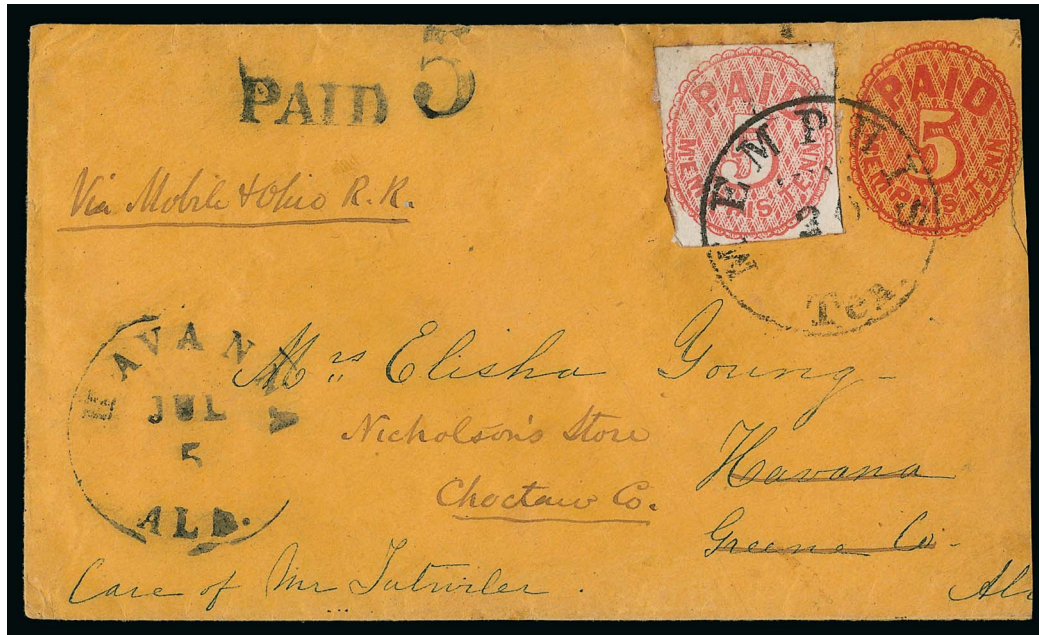 PAID 5
PAID
5
MEMPHIS, TENN
PAID
5
MEMPHIS, TENN
MEMPHIS
Ten.
Via Mobile & Ohio R. R.
HAVANNA
JUL
5
ALA.
Mrs Elisha Young
Nicholson's Store
Havana
Choctaw Co.
Greene Co.
Care of Mr Tutwiler.